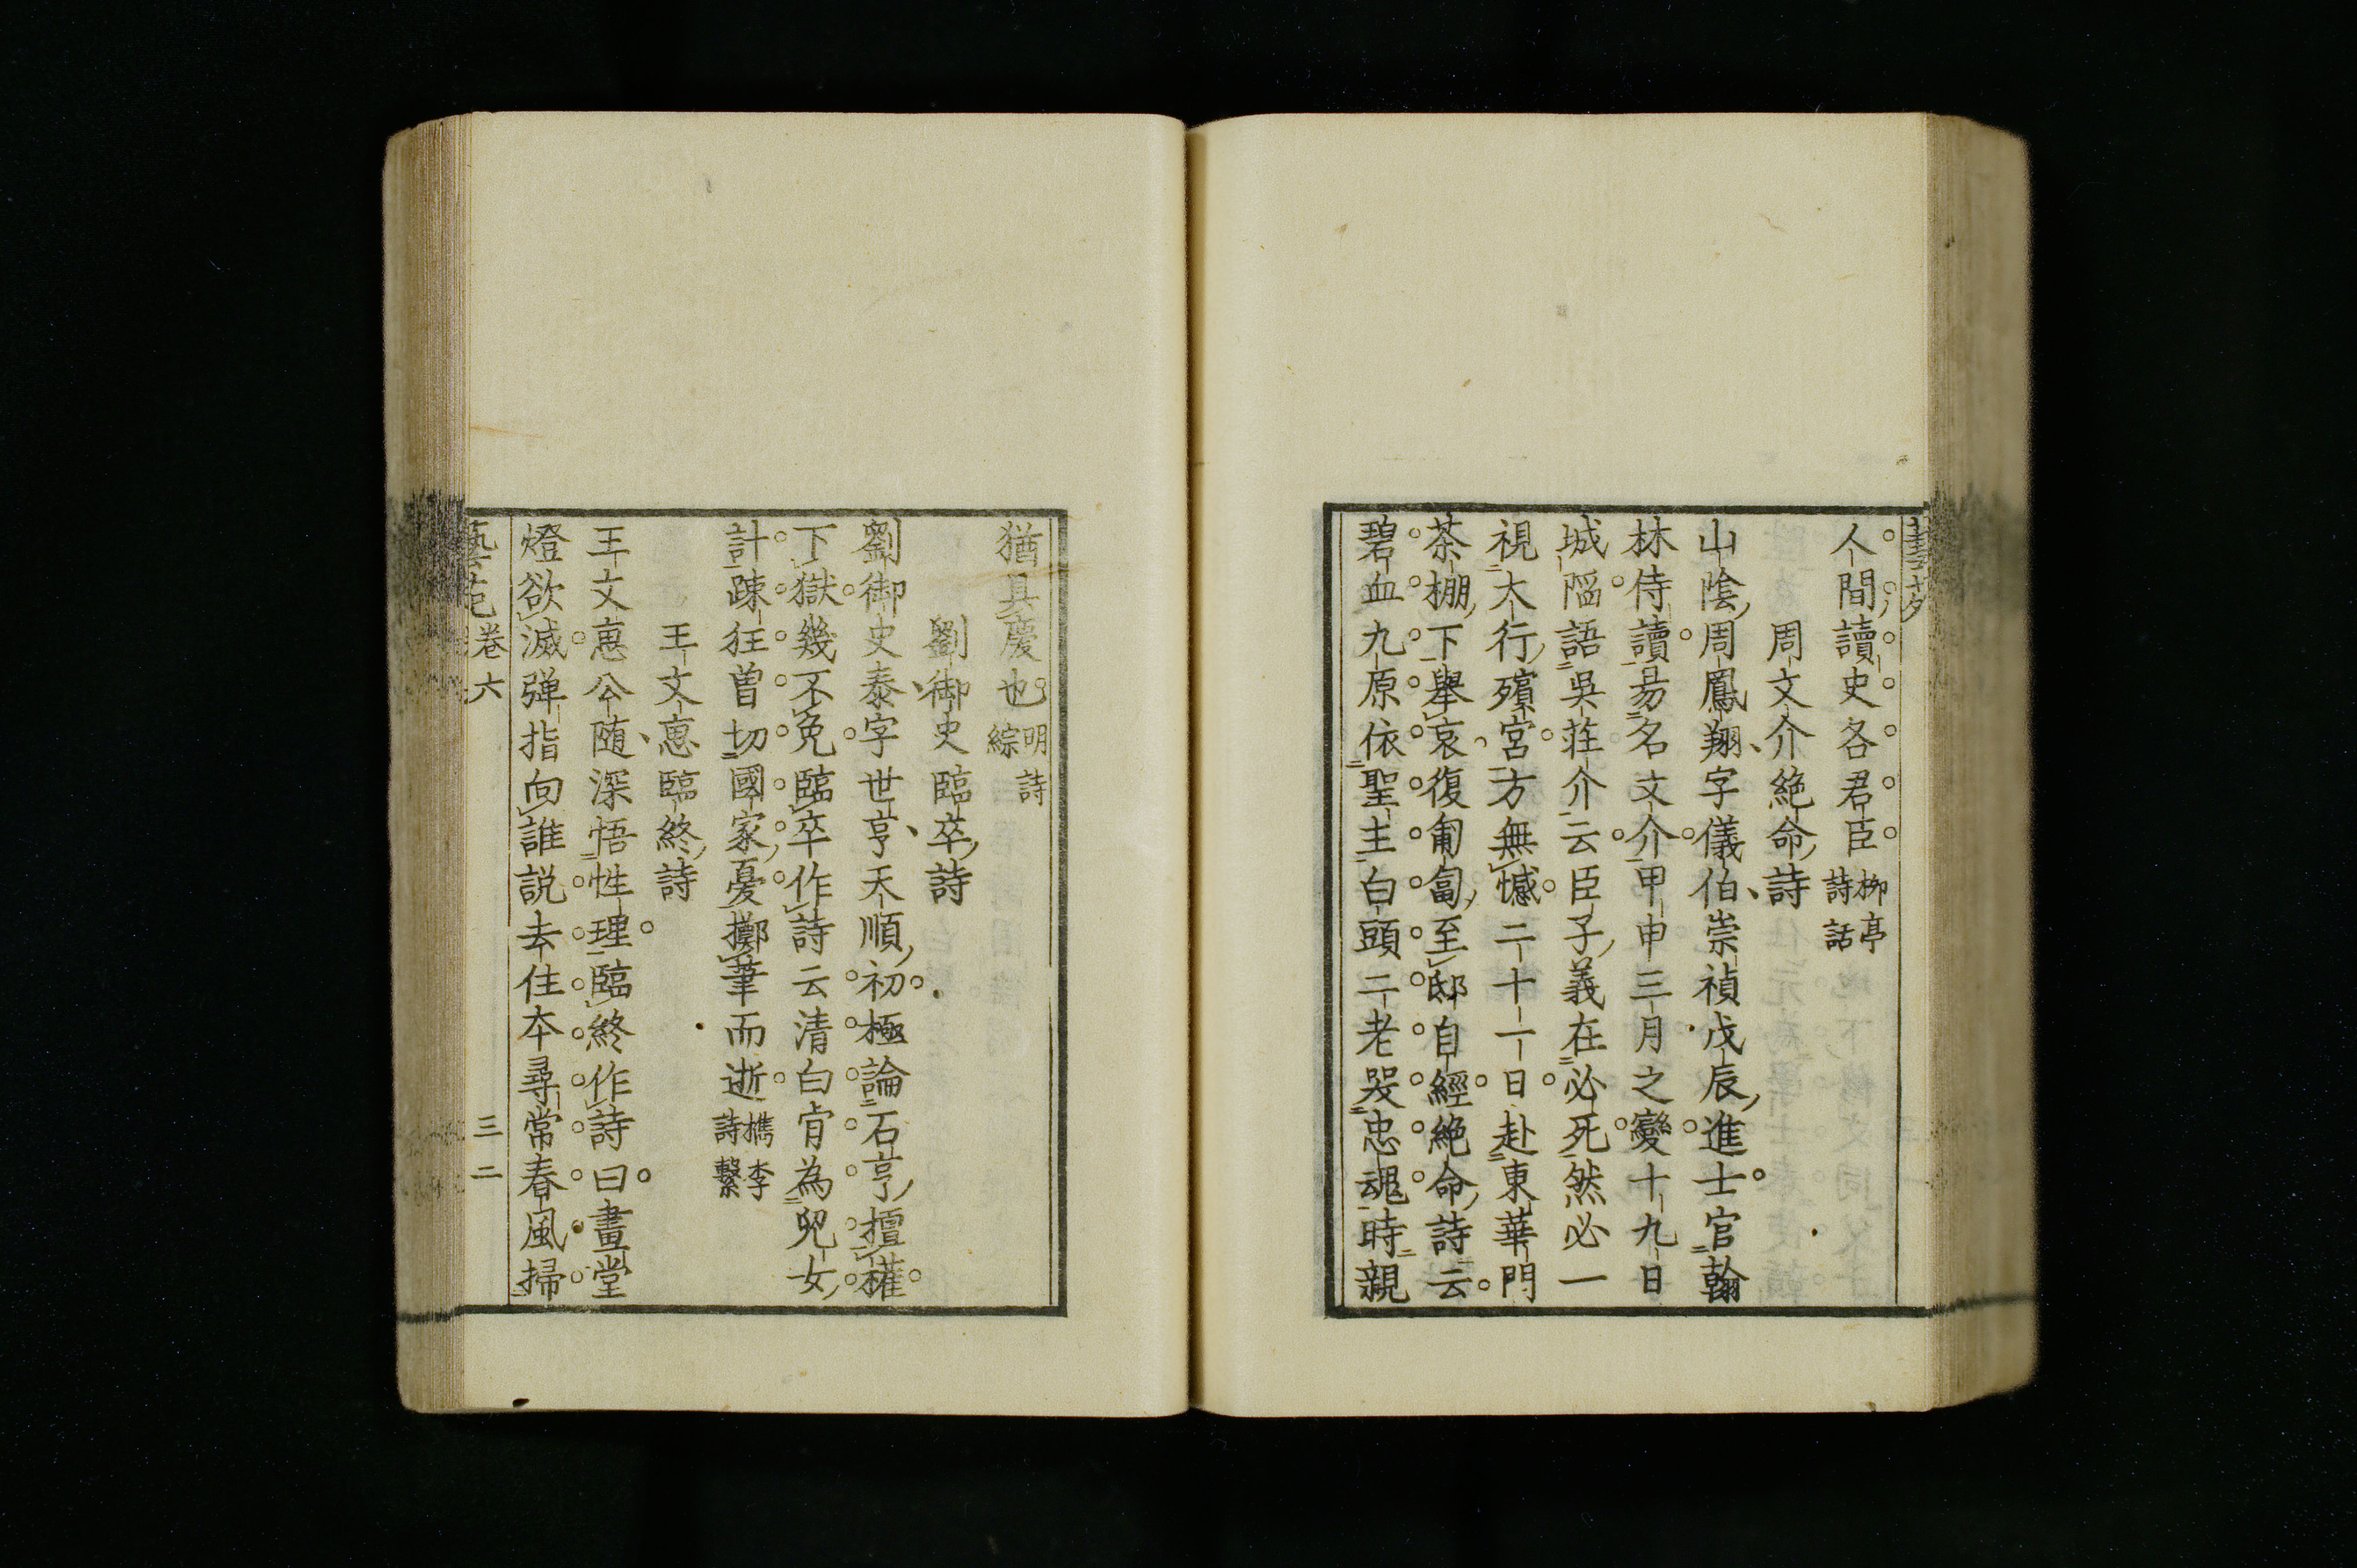 人間讀史各君臣 柳亭詩話
周文介絶命詩
山陰周鳳翔字儀伯崇禎戊辰進士官翰
林侍讀易名文介甲申三月之變十九日
城陷語吳莊介云臣子義在必死然必一
視大行殯宮方無憾二十一日赴東華門
茶棚下舉哀復匍匐至邸自經絶命詩云
碧血九原依聖主白頭二老哭忠魂時親
猶具慶也 明詩綜
劉御史臨卒詩
劉御史泰字世亨天順初極論石亨擅權
下獄幾不免臨卒作詩云清白肯為兒女
計踈狂曽切國家憂擲筆而逝 檇李詩繫
王文惠臨終詩
王文惠公随深悟性理臨終作詩曰畫堂
燈欲滅弾指向誰説去住本尋常春風掃
藝苑 卷六 三二